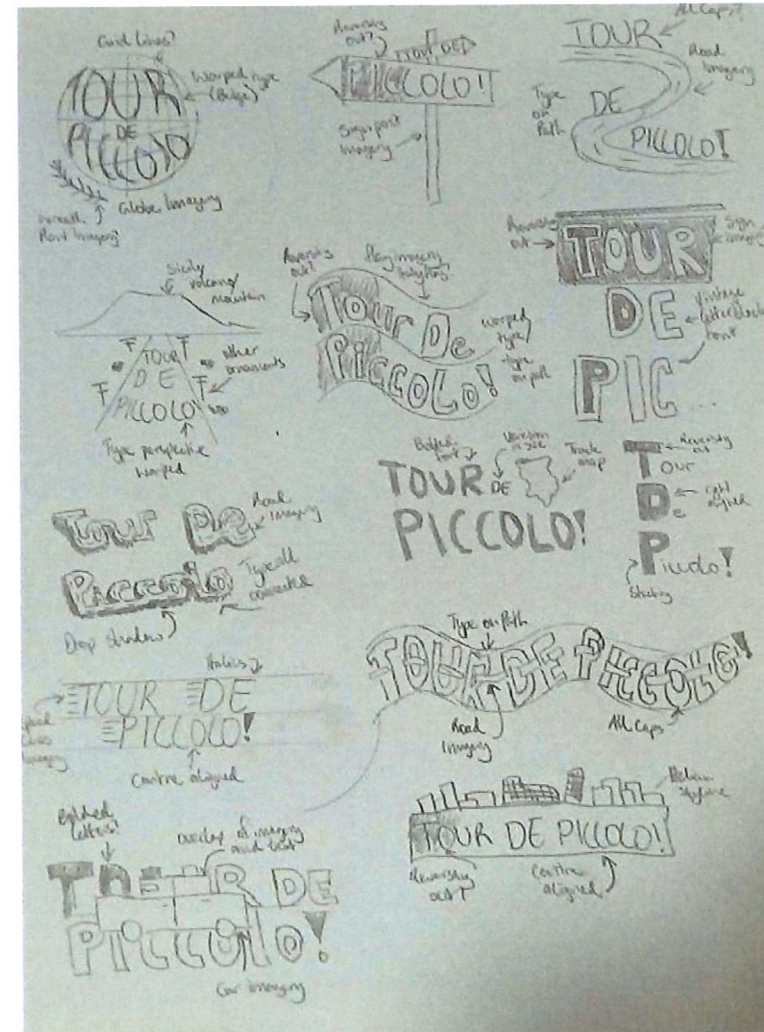 Grid lines?
TOUR
DE
PICCOLO
Warped type
(Bulge)
Globe Imagery
Plant Imagery
Reversing
out?
TOUR DE
PICCOLO!
Signpost
Imagery
All Caps?
TOUR
DE
PICCOLO!
Road
Imagery
Type
on
Path
Sicily
volcano/
mountain
TOUR
DE
PICCOLO!
other
ornaments
Type perspective
warped
Reversing
out?
Flag imagery
Tour De
PiccoLo!
Warped
type/
type
on path
Reversing
out
Sign
imagery
TOUR
DE
PIC...
Vintage
letterblock
font
TOUR DE
PICCOLO!
Variation
in size
Track
map
Reversing
out
Tour
De
Piccolo!
Shading
Tour De
Piccolo
Road
Imagery
Type all
connected
Drop Shadow
Italics
TOUR DE
PICCOLO!
Imagery
Centre aligned
Type on Path
TOUR DE PICCOLO!
Road
Imagery
All Caps
Italian
Skyline
TOUR DE PICCOLO!
Reversing
out?
Centre
aligned
letters?
overlap of imagery
and text
DE
Piccolo!
Car imagery